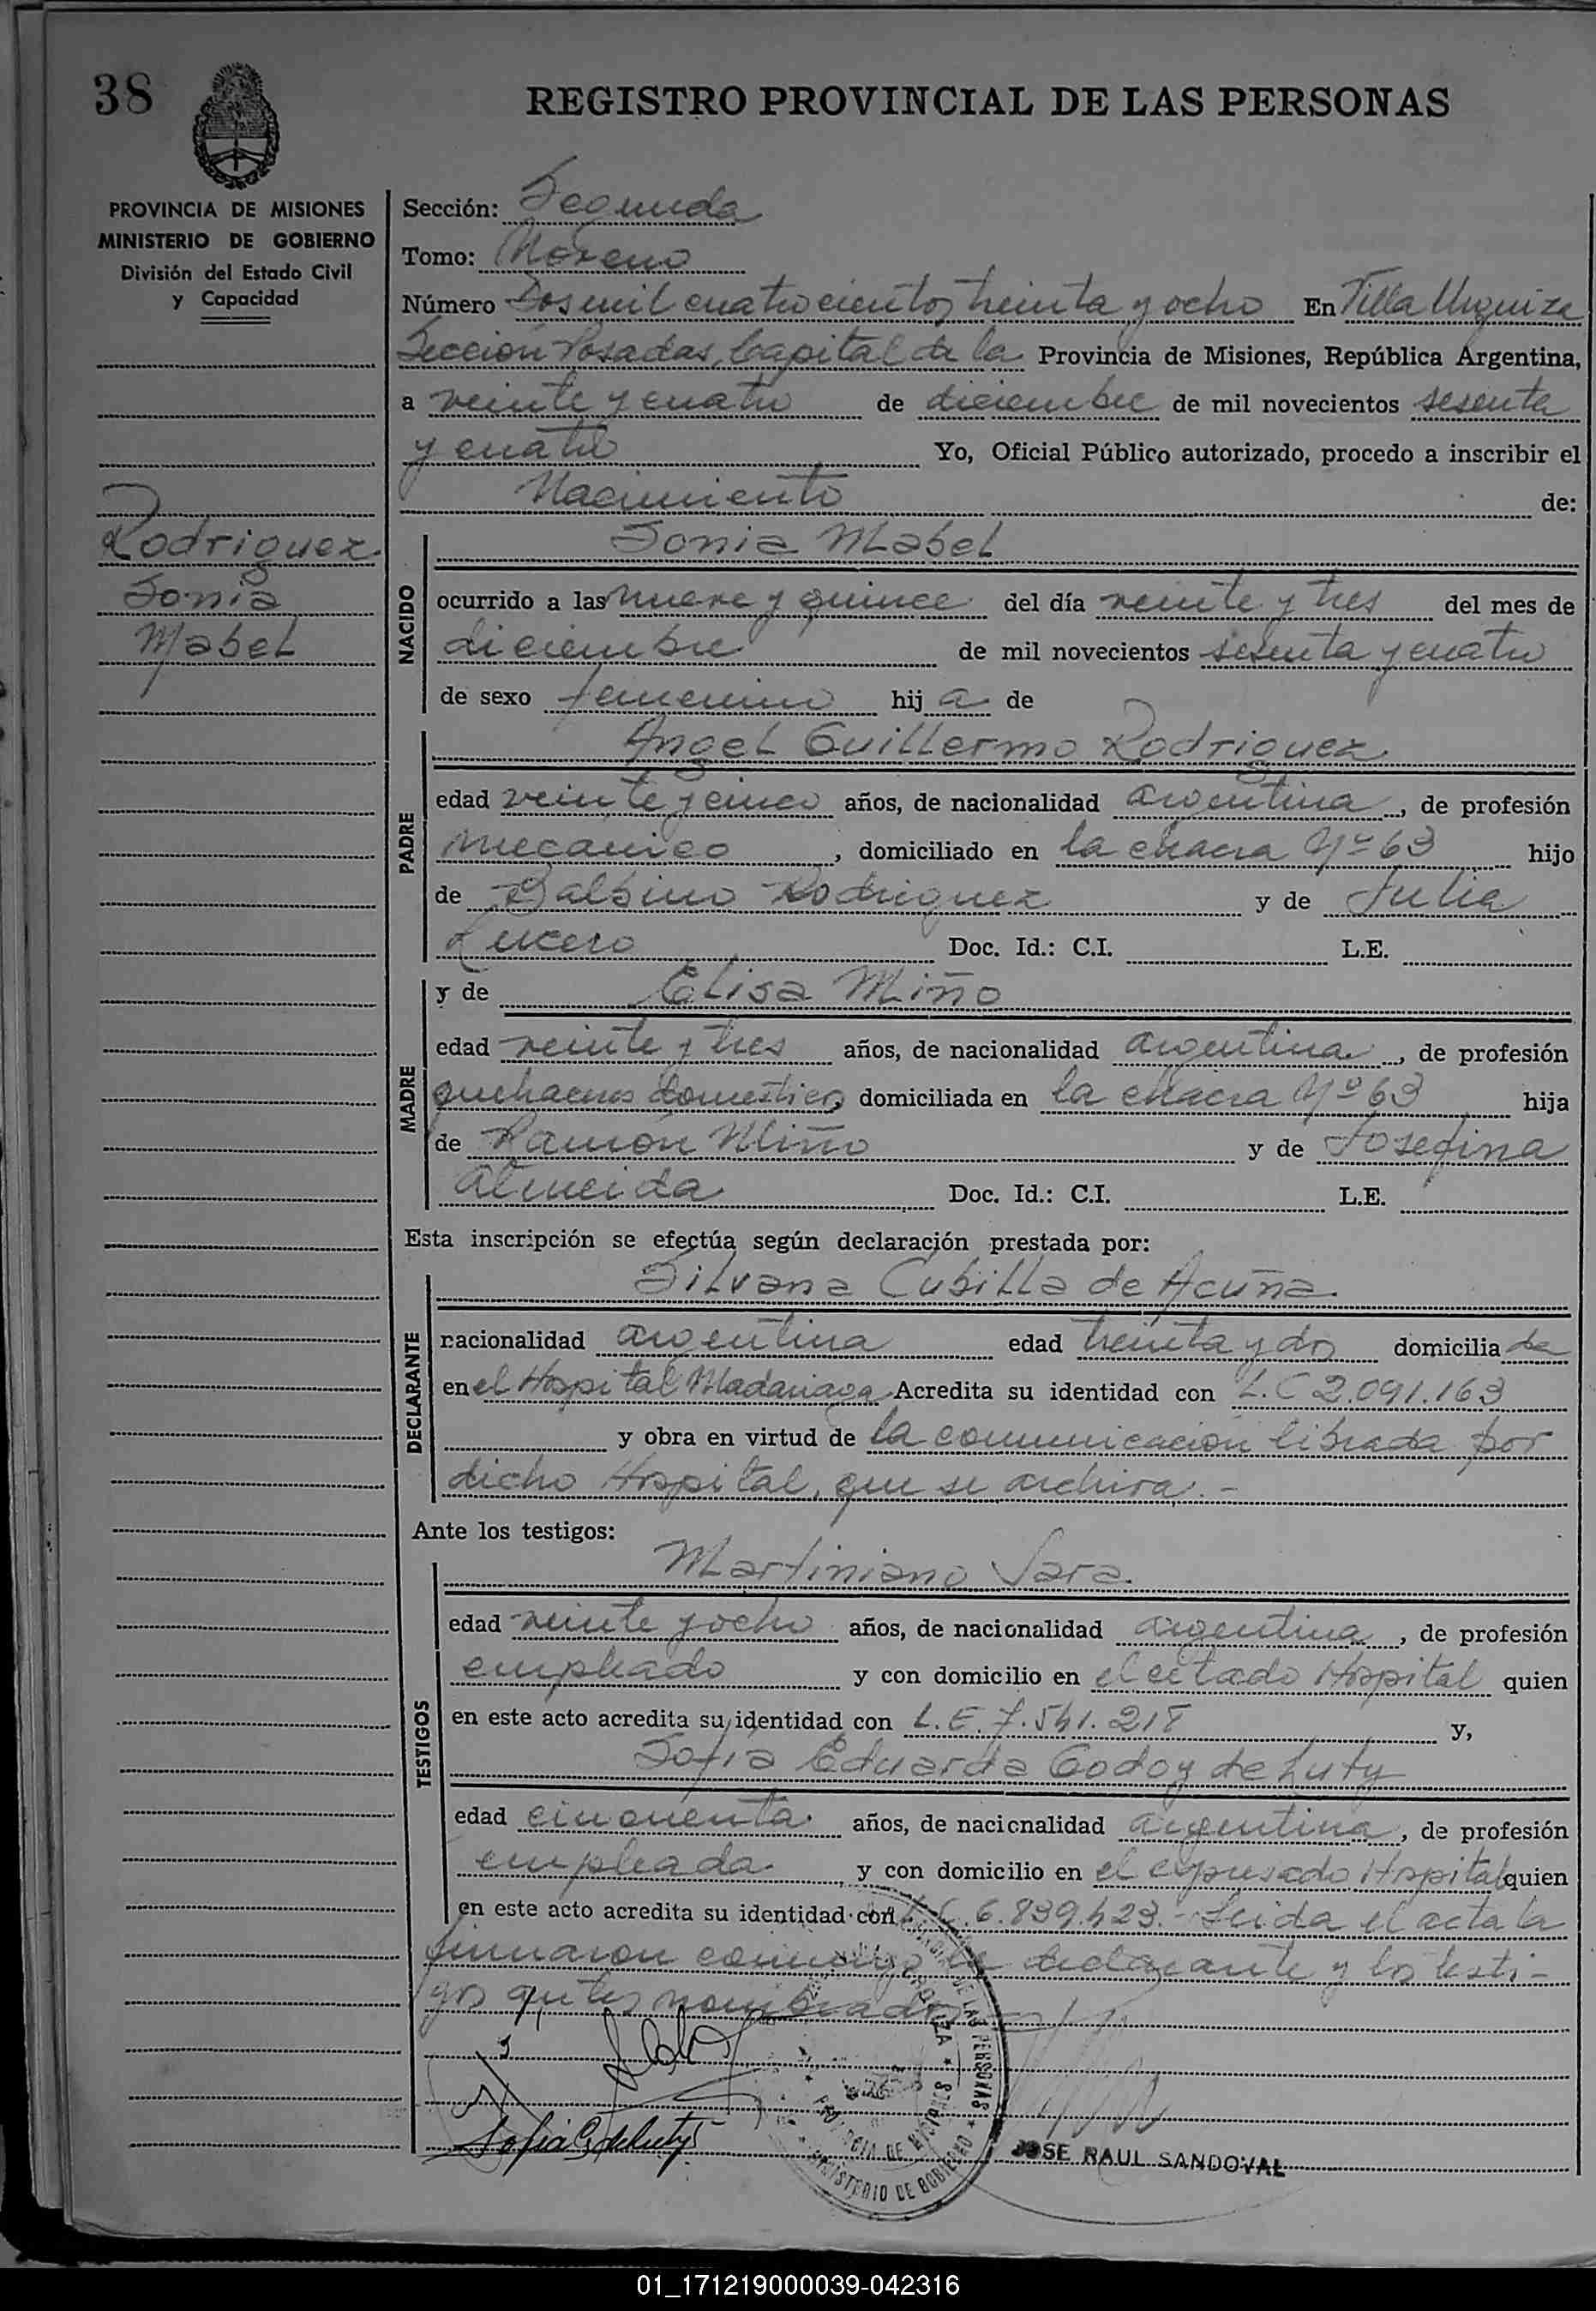 38
REGISTRO PROVINCIAL DE LAS PERSONAS
PROVINCIA DE MISIONES
MINISTERIO DE GOBIERNO
División del Estado Civil
y Capacidad
Rodriguez
Sonia
Mabel
Sección: Segunda
Tomo: Moreno
Número Dos mil cuatrocientos treinta y ocho En Villa Urquiza
Sección Posadas, Capital de la Provincia de Misiones, República Argentina,
a veinte y cuatro de diciembre de mil novecientos sesenta
y cuatro Yo, Oficial Público autorizado, procedo a inscribir el
Nacimiento de:
NACIDO
Sonia Mabel
ocurrido a las nueve y quince del día veinte y tres del mes de
diciembre de mil novecientos sesenta y cuatro
de sexo femenino hij a de
PADRE
Angel Guillermo Rodriguez
edad veinte y cinco años, de nacionalidad argentina, de profesión
mecánico, domiciliado en la chacra Nº 63 hijo
de Balbino Rodriguez y de Julia
Lucero Doc. Id.: C.I. L.E.
MADRE
y de Elisa Miño
edad veinte y tres años, de nacionalidad argentina, de profesión
quehaceres domesticos domiciliada en la chacra Nº 63 hija
de Ramón Miño y de Josefina
Almeida Doc. Id.: C.I. L.E.
Esta inscripción se efectúa según declaración prestada por:
DECLARANTE
Silvana Cubilla de Acuña.
nacionalidad argentina edad treinta y dos domicilia da
en el Hospital Madariaga Acredita su identidad con L.C 2.091.163
y obra en virtud de la comunicación librada por
dicho Hospital, que se archiva.-
Ante los testigos:
TESTIGOS
Martiniano Sara.
edad veinte y ocho años, de nacionalidad argentina, de profesión
empleado y con domicilio en el citado Hospital quien
en este acto acredita su identidad con L.E. 7.541.218 y,
Sofia Eduarda Godoy de Luty
edad cincuenta años, de nacionalidad argentina, de profesión
empleada y con domicilio en el expresado Hospital quien
en este acto acredita su identidad con L.C. 6.839.423.- Leida el acta la
firmaron conmigo la declarante y los testi-
gos antes nombrados
Sofia G. de Luty
JOSE RAUL SANDOVAL
MINISTERIO DE GOBIERNO
PROVINCIA DE MISIONES
DE LAS PERSONAS
01_171219000039-042316